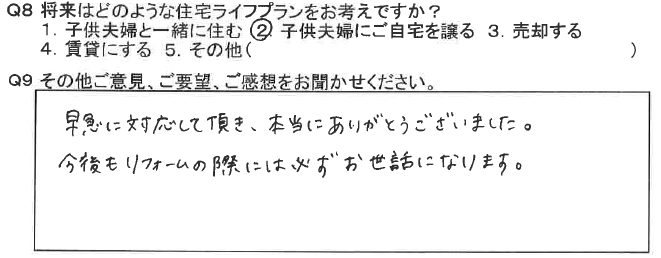 Q8 将来はどのような住宅ライフプランをお考えですか？
1. 子供夫婦と一緒に住む ② 子供夫婦にご自宅を譲る 3. 売却する
4. 賃貸にする 5. その他(　　　)
Q9 その他ご意見、ご要望、ご感想をお聞かせください。
早急に対応して頂き、本当にありがとうございました。
今後もリフォームの際には必ずお世話になります。